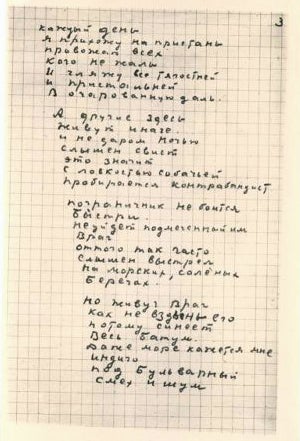 3
каждый день
я прихожу на пристань
провожать всех
кого не жаль
И гляжу все тягостней
и пристальней
В очарованную даль.
А другие здесь
живут иначе.
и не даром ночью
слышен свист
это значит
с ловкостью собачьей
пробирается контрабандист
пограничник не боится
быстри.
не уйдет подмеченный им
Враг
оттого так часто
слышен выстрел
на морских, солёных
Берегах.
но живуч враг
как не вздень его
потому синеет
весь Батум.
даже море кажется мне
индиго
под бульварный
смех и шум